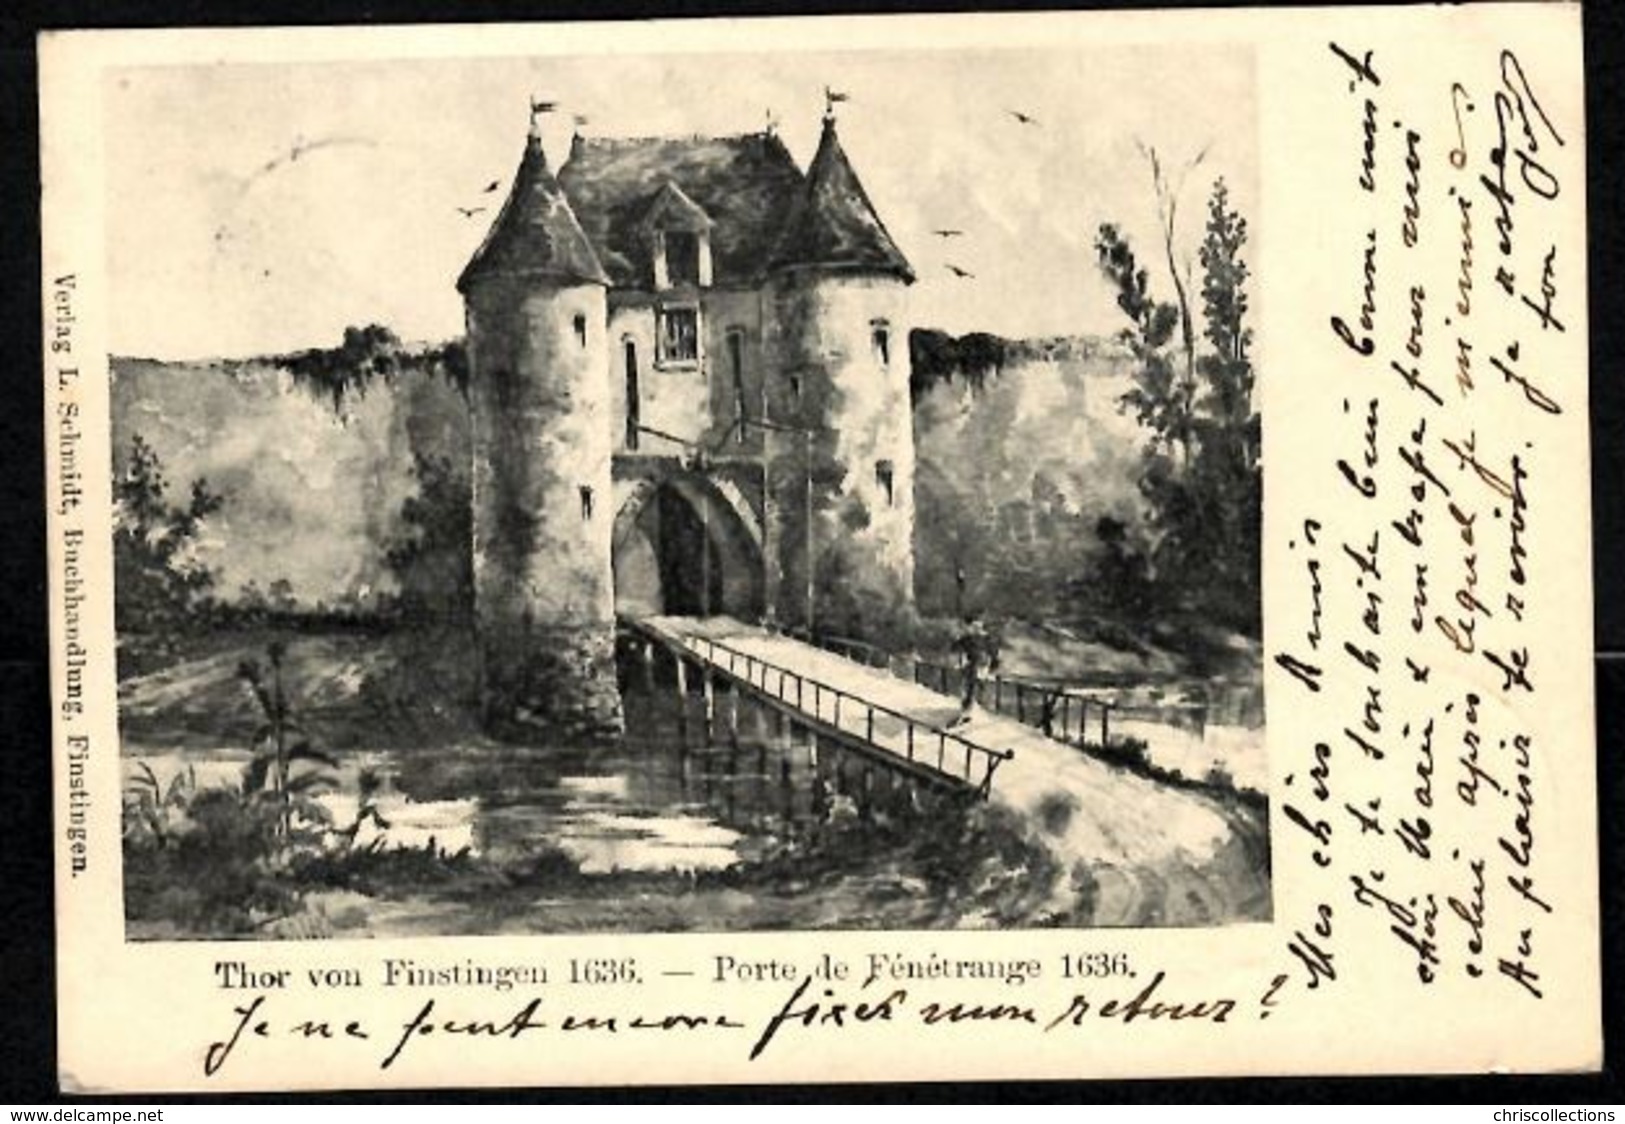 Verlag L. Schmidt, Buchhandlung, Finstingen.
Thor von Finstingen 1636. — Porte de Fénétrange 1636.
Je ne peut encore fixer mon retour?
Mes chèrs Amis
Je te souhaite bien bonne nuit
chère Marie & embrase pour moi
celui après lequel je m'ennuie.
Au plaisir de revoir. Je reste
ton
www.delcampe.net
chriscollections